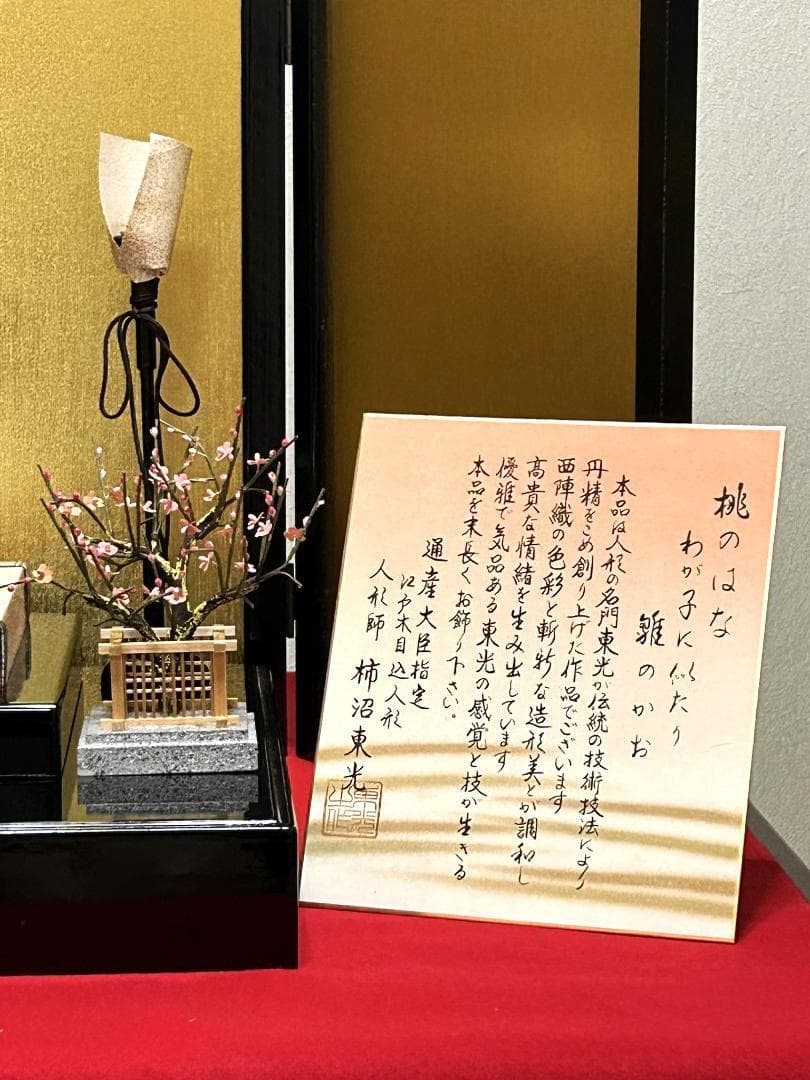 桃のはな
わが子に似たり
雛のかお
本品は人形の名門東光が伝統の技術技法により
丹精をこめ創り上げた作品でございます
西陣織の色彩と斬新な造形美とが調和し
高貴な情緒を生み出しています
優雅で気品ある東光の感覚と技が生きる
本品を末長くお飾り下さい。
通産大臣指定
江戸木目込人形
人形師 柿沼東光